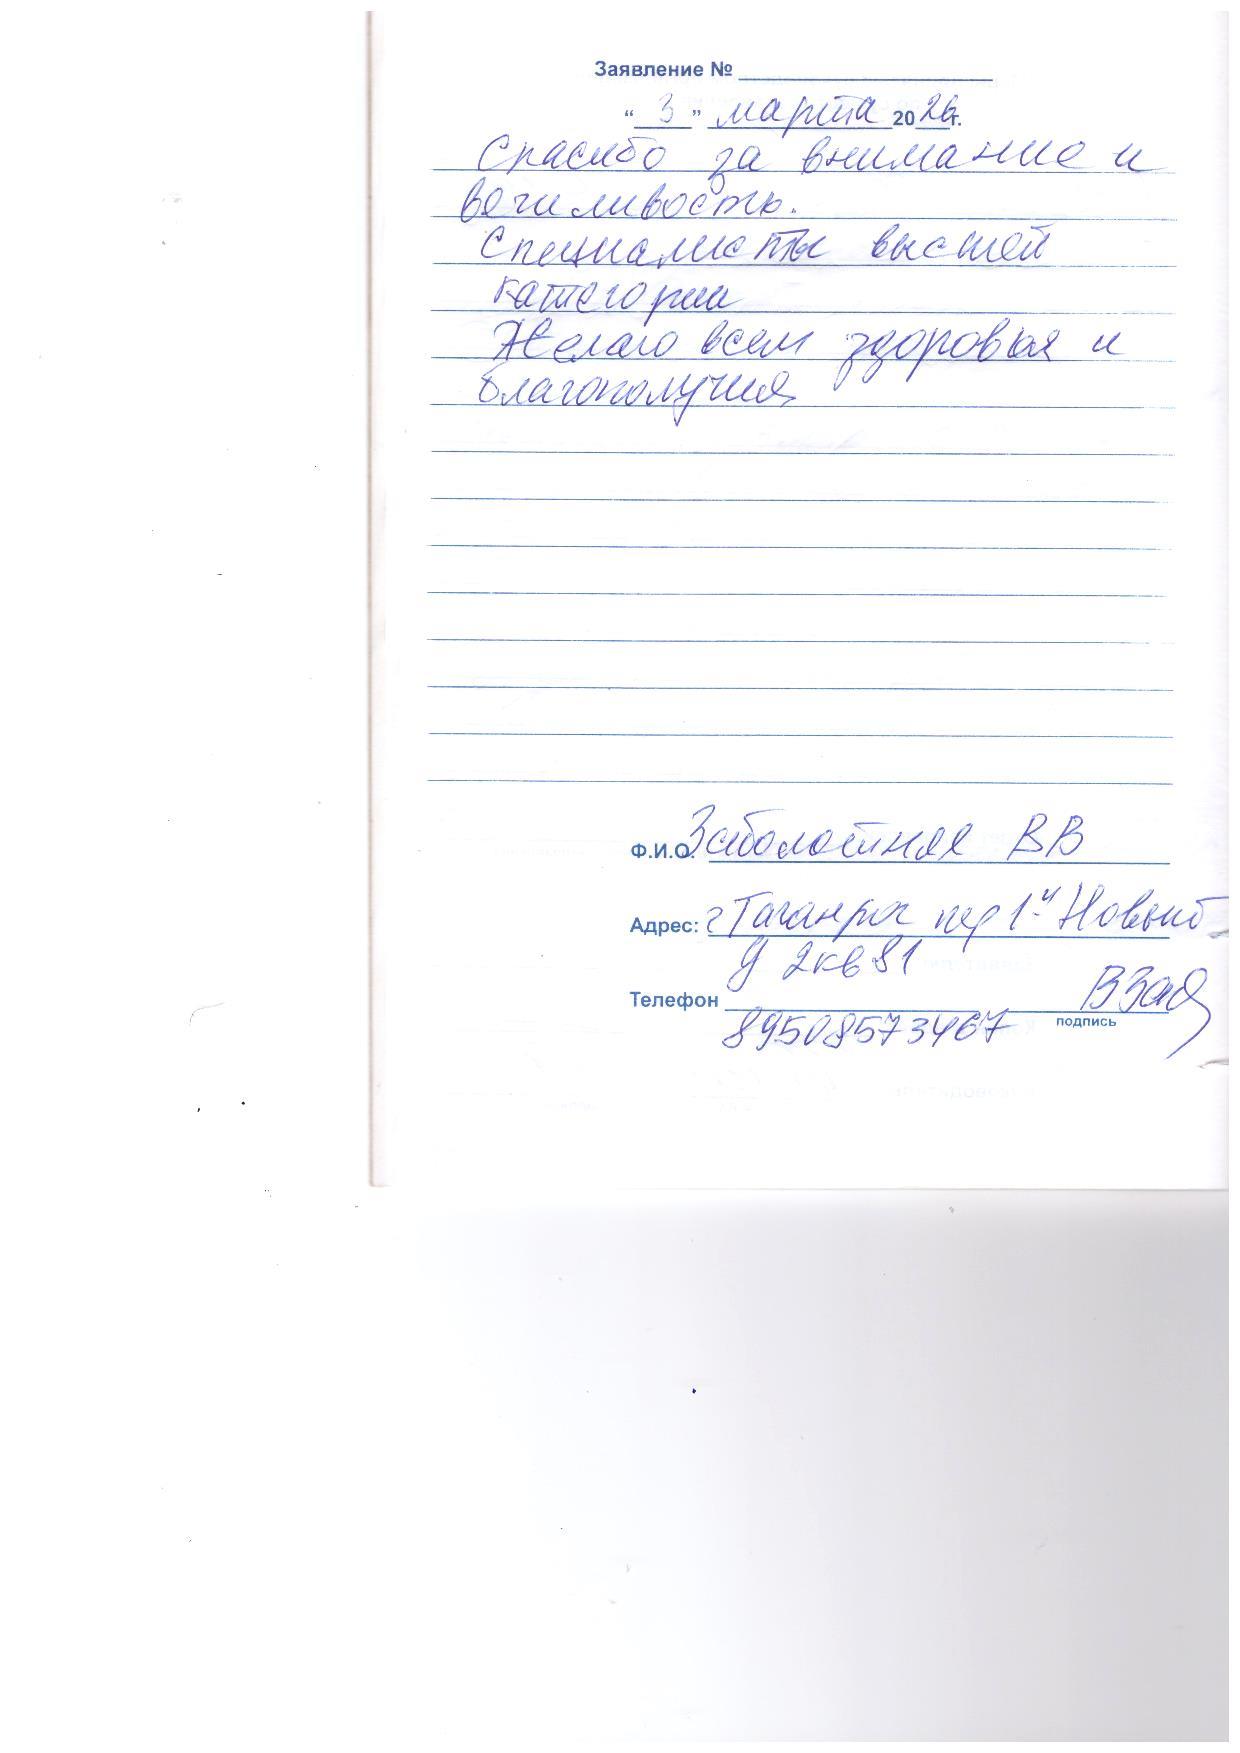 Заявление №
“ 3 ” марта 2026г.
Спасибо за внимание и
вочиливость.
Специалисты высшей
категории
Желаю всем здоровья и
благополучия
Ф.И.О. Заболотняя ВВ
Адрес: г Таганрог пер 1-й Новый
д 2кв81
Телефон
89508573467
подпись